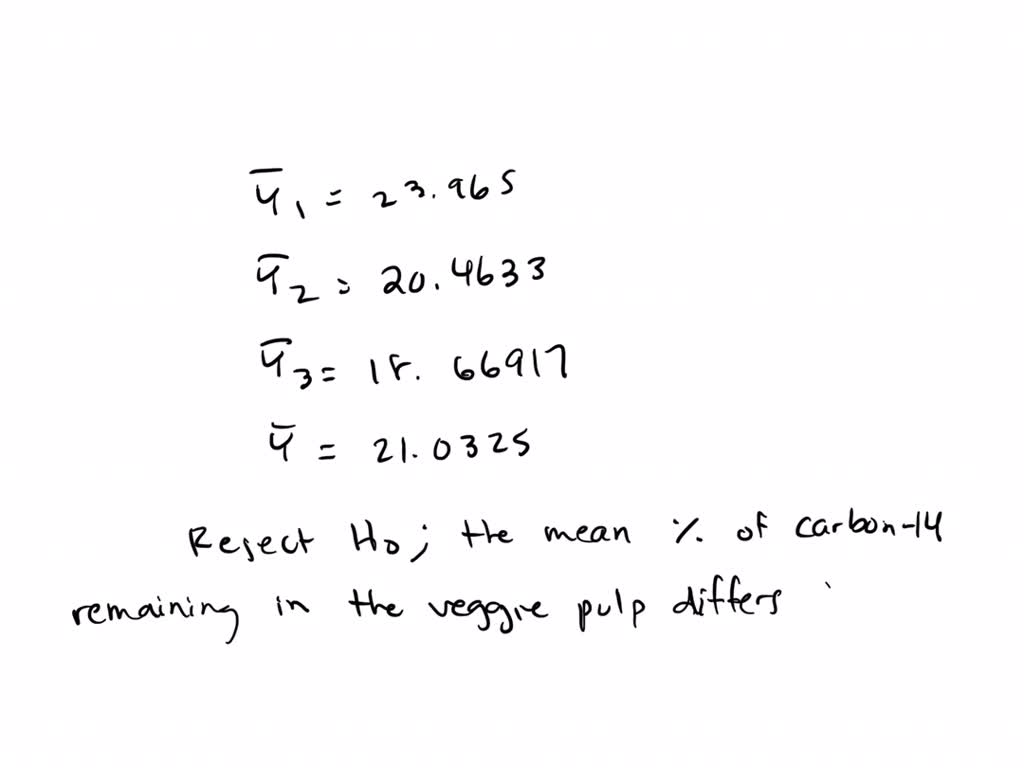 Ȳ₁ = 23.965
Ȳ₂ = 20.4633
Ȳ₃ = 18.66917
Ȳ = 21.0325
Reject H₀; the mean % of carbon-14
remaining in the veggie pulp differs